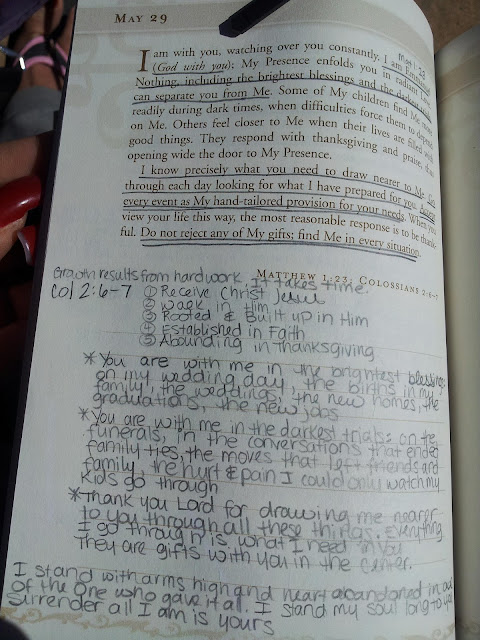 MAY 29
I am with you, watching over you constantly. I am Immanuel
Matt 1:23
(God with you); My Presence enfolds you in radiant Love.
Nothing, including the brightest blessings and the darkest trials,
can separate you from Me. Some of My children find Me more
readily during dark times, when difficulties force them to depend
on Me. Others feel closer to Me when their lives are filled with
good things. They respond with thanksgiving and praise, thus
opening wide the door to My Presence.
I know precisely what you need to draw nearer to Me. Go
through each day looking for what I have prepared for you. Accept
every event as My hand-tailored provision for your needs. When you
view your life this way, the most reasonable response is to be thank-
ful. Do not reject any of My gifts; find Me in every situation.
MATTHEW 1:23; COLOSSIANS 2:6-7
Growth results from hard work. It takes time.
Col 2:6-7 ① Receive Christ Jesus
② Walk in Him
③ Rooted & Built up in Him
④ Established in Faith
⑤ Abounding in Thanksgiving
* You are with me in the brightest blessings:
on my wedding day, the births in my
family, the weddings, the new homes, the
graduations, the new jobs
* You are with me in the darkest trials: on the
funerals, in the conversations that ended
family ties, the moves that left friends and
family, the hurt & pain I could only watch my
kids go through
* Thank you Lord for drawing me nearer
to you through all these things. Everything
I go through is what I need in you
They are gifts with you in the center.
I stand with arms high and heart abandoned in awe
of the One who gave it all. I stand my soul long to you
surrender all I am is yours